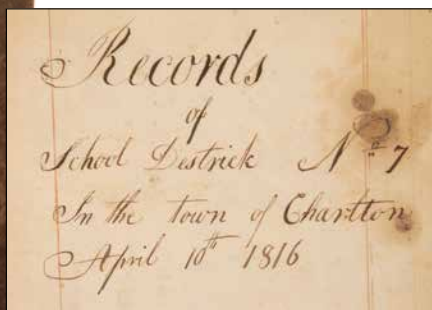 Records
of
School Destrick Nº 7
In the town of Charlton
April 10th 1816